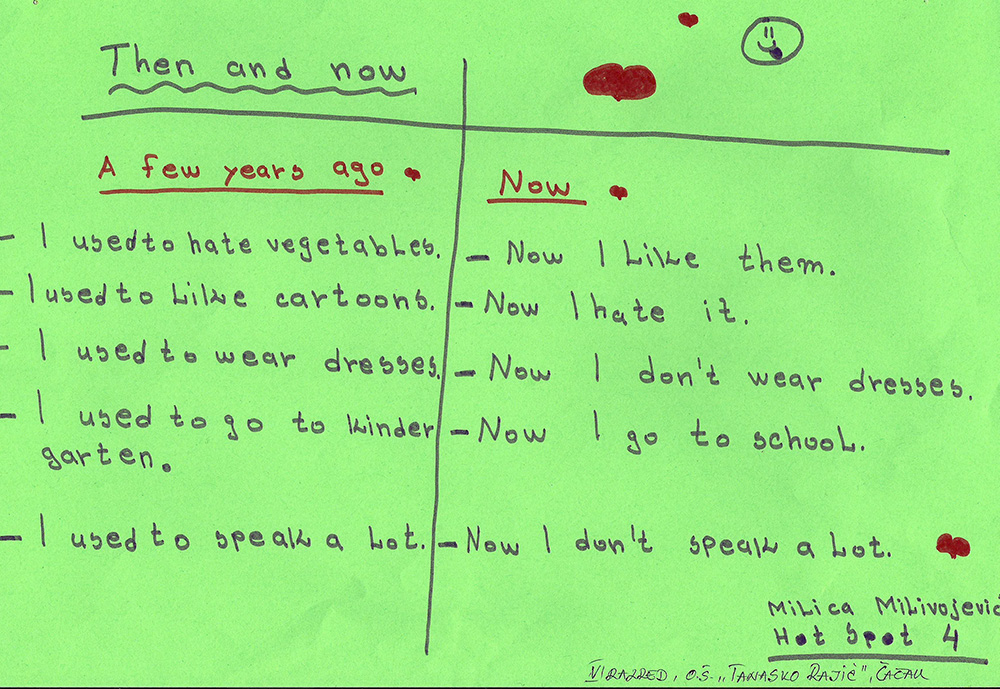 Then and now
A few years ago
- I used to hate vegetables.
- I used to like cartoons.
- I used to wear dresses.
- I used to go to kinder
garten.
- I used to speak a lot.
Now
- Now I like them.
- Now I hate it.
- Now I don't wear dresses.
- Now I go to school.
- Now I don't speak a lot.
Milica Milivojević
Hot Spot 4
VI RAZRED, O.Š. „TANASKO RAJIĆ", ČAČAK